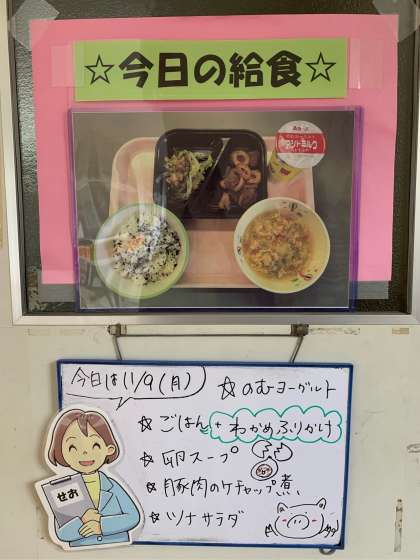 ☆今日の給食☆
今日は11/9(月)
☆のむヨーグルト
☆ごはん+わかめふりかけ
☆卵スープ
☆豚肉のケチャップ煮
☆ツナサラダ
せお